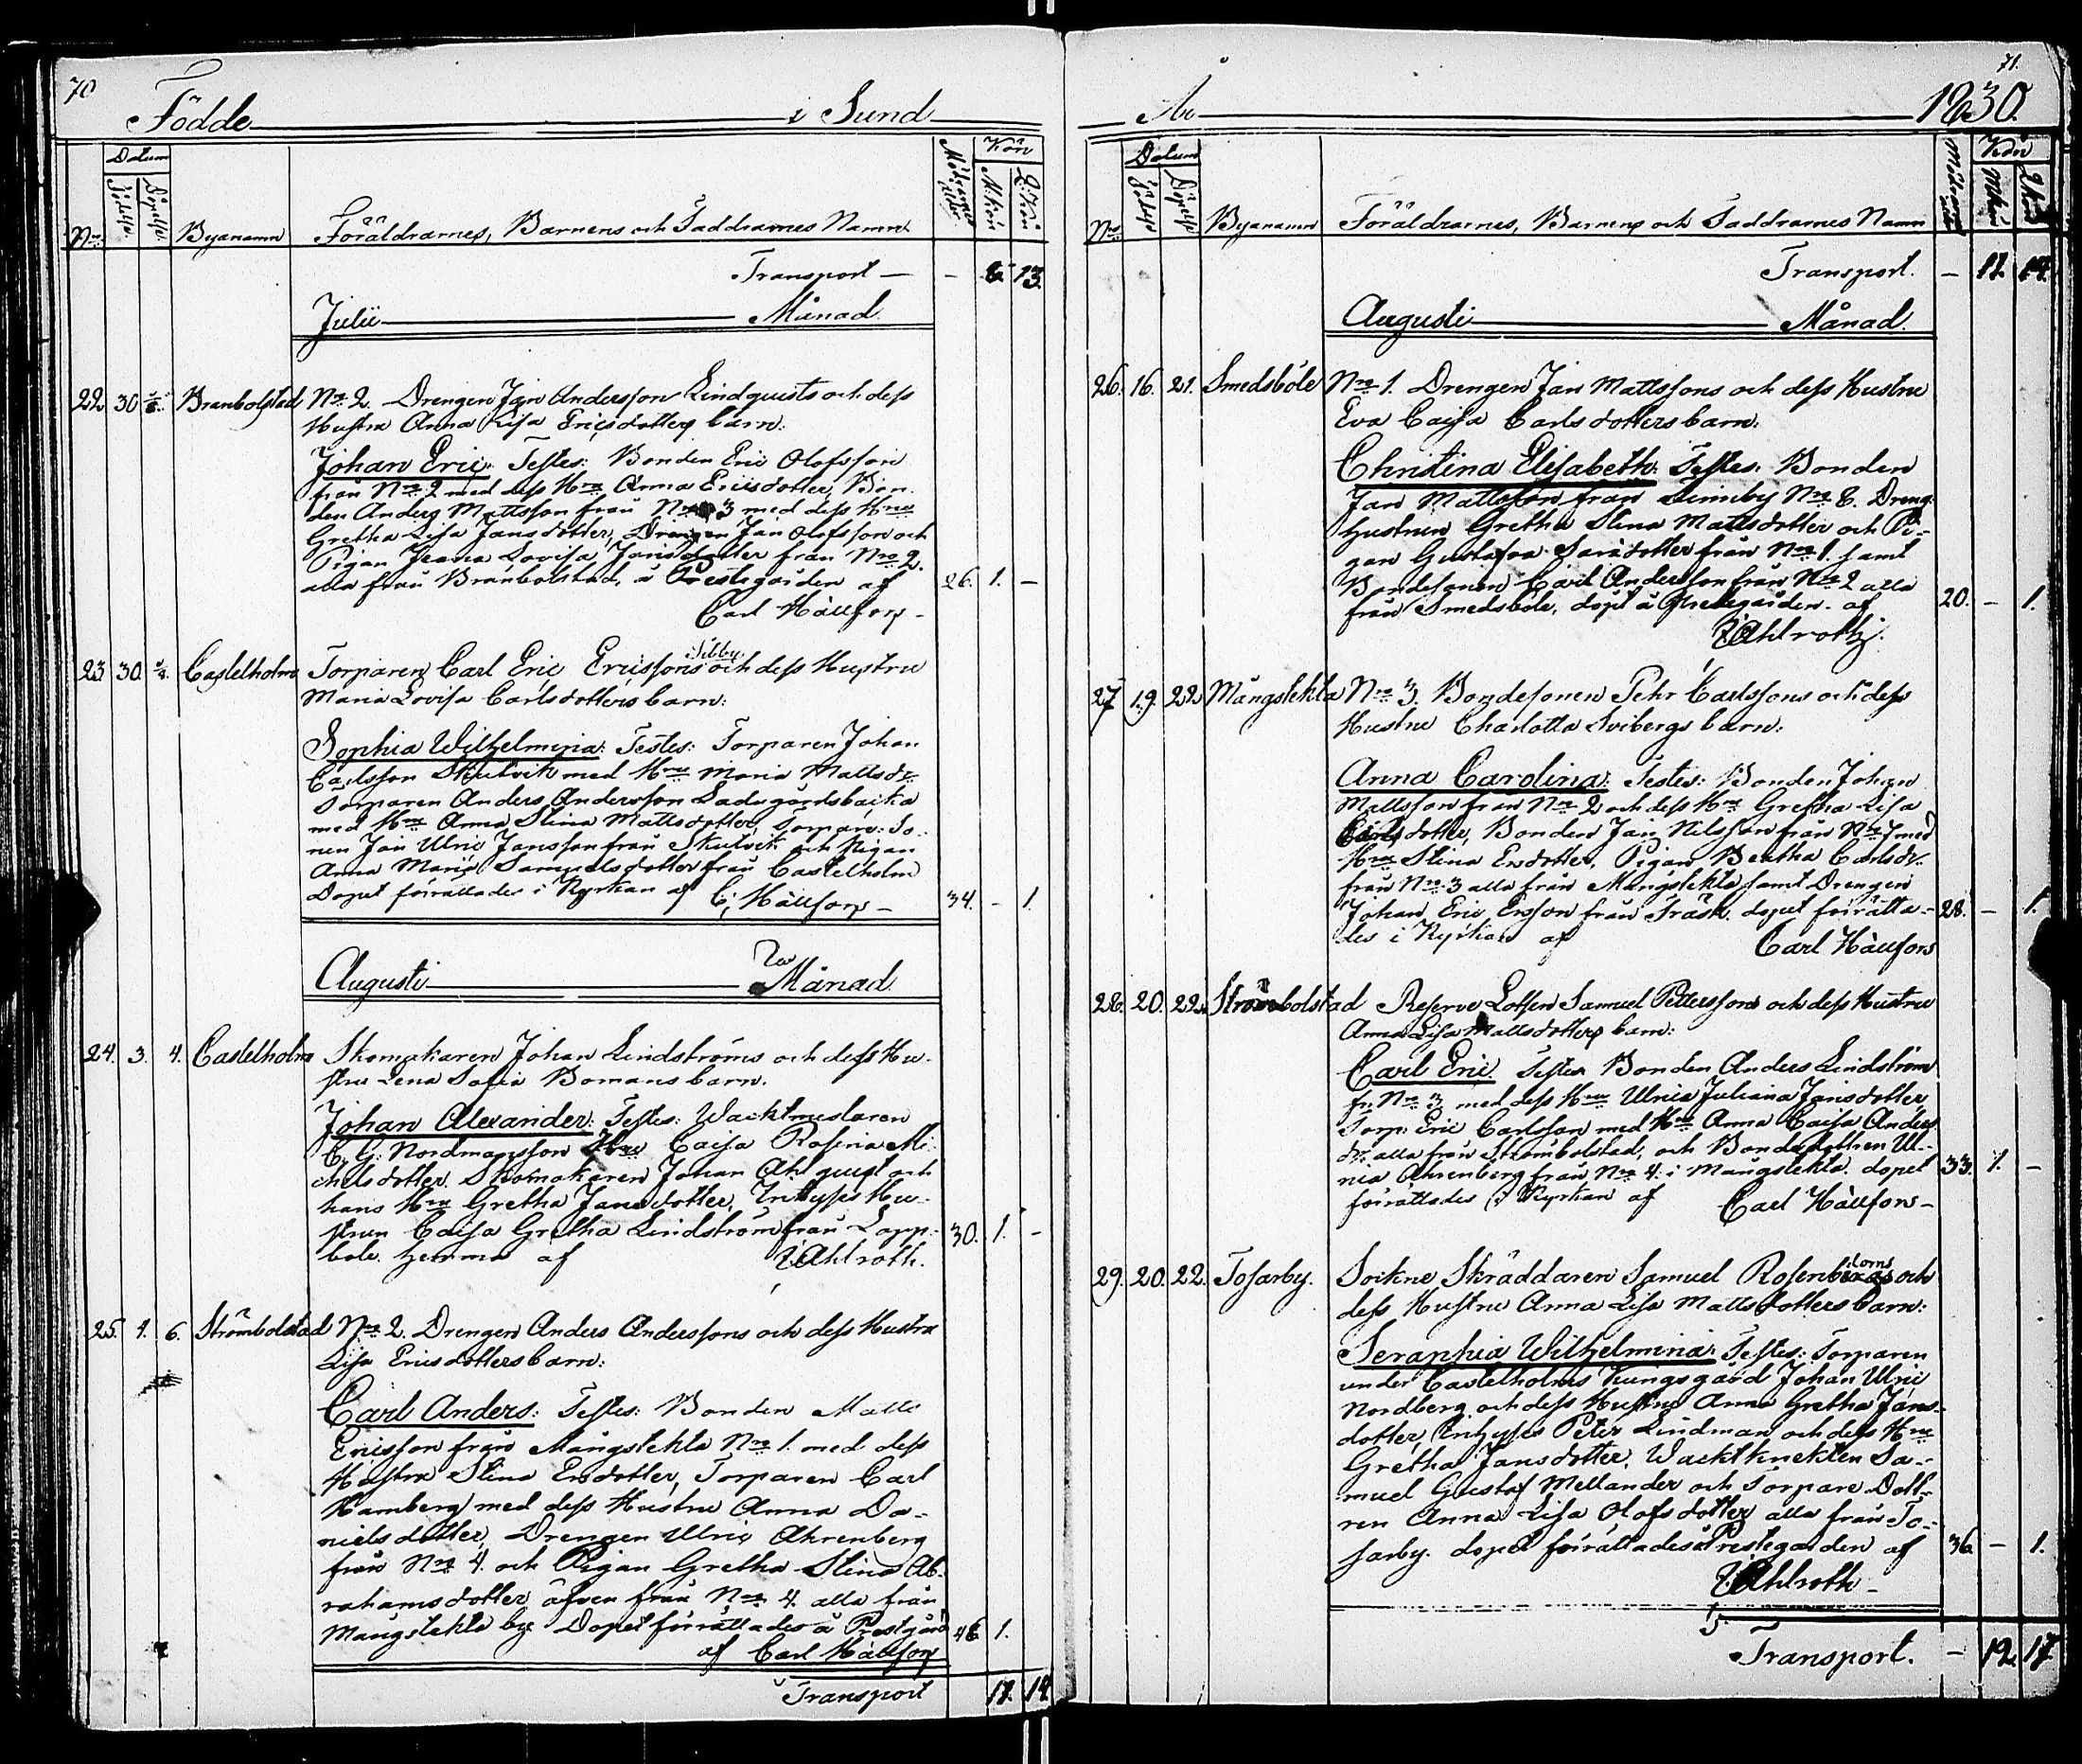 70
Födde i Sund
Datum Kön
No Födelse Döpelse Byanamn Föräldrarnes, Barnens och Faddrarnes Namn Mödrarnes ålder M.kön Q.kön
Transport — – 8. 13.
Julii Månad
22 30 Branbolstad No 2 Drengen Jan Andersson Lindquists och dess
Hustru Anna Lisa Ericsdotters barn:
Johan Eric: Testes: Bonden Eric Olofsson
från No 2 med dess Hru Anna Ericsdotter, Bon-
den Anders Mattsson från No 3 med dess Hru
Gretha Lisa Jansdotter, Drengen Jan Olofsson och
Pigan Lovisa Jansdotter från No 2.
alla från Branbolstad, å Prestegården af 26. 1. –
Carl Hällfors –
23 30. Castelholm Torparen Carl Eric Ericssons Sibby och dess Hustru
Maria Lovisa Carlsdotters barn:
Sophia Wilhelmina: Testes: Torparen Johan
Carlsson Skutvik med Hru Maria Mattsdr
Torparen Anders Andersson Ladugårdsbacka
med Hru Anna Stina Mattsdotter, Torpare: So-
nen Jan Ulric Jansson från Skutvik och Pigan
Anna Maria Samuelsdotter från Castelholm
Dopet förrättades i Kyrkan af C; Hällfors – 34. – 1.
Augusti Månad
24. 3. 4. Castelholm Skomakaren Johan Lindströms och dess Hu-
stru Lena Sofia Bomans barn.
Johan Alexander: Testes: Wacktmestaren
C. G. Nordmansson Hru Caisa Rosina Mi-
chelsdotter. Skomakaren Johan Ahlquist och
hans Hru Gretha Jansdotter, Inhyses Hu-
strun Caisa Gretha Lindström från Lapp-
böle. hemma af Ahlroth. 30. 1. –
25. 4. 6. Strömbolstad No 2. Drengen Anders Anderssons och dess Hustru
Lisa Ericsdotters barn:
Carl Anders: Testes: Bonden Matts
Ericsson från Mångstekta No 1. med dess
Hustru Stina Ersdotter, Torparen Carl
Hamberg med dess Hustru Anna Da-
nielsdotter, Drengen Ulric Ahrenberg
från No 4. och Pigan Gretha Stina Ab-
rahamsdotter äfven från No 4. alla från
Mångstekta by. Dopet förrättades å Prestgård 46 1.
af Carl Hällfors
Transport 11. 14.
71.
År 1830.
Datum Kön
No Födelse Döpelse Byanamn Föräldrarnes, Barnens och Faddrarnes Namn Mödrarnes ålder M.kön Q.kön
Transport. – 11. 14.
Augusti Månad.
26. 16. 21. Smedsböle No 1. Drengen Jan Mattssons och dess Hustru
Eva Caisa Carlsdotters barn.
Christina Elisabeth: Testes: Bonden
Jan Mattsson från No 8. Dreng-
hustrun Gretha Stina Mattsdotter och Pi-
gan Gustafva Jansdotter från No 1. samt
Bondesonen Carl Andersson från No 2 alla
från Smedsböle, döpt å Prestegården. af 20. – 1.
Ahlroth.
27 19. 22 Mångstekta No 3. Bondesonen Pehr Carlssons och dess
Hustru Charlotta Svibergs barn:
Anna Carolina: Testes: Bonden Johan
Mattsson från No 2 och dess Hru Gretha Lisa
Carlsdotter, Bonden Jan Nilsson från No 7 med
Hru Stina Ersdotter, Pigan Beatha Carlsdr.
från No 3 alla från Mångstekta samt Drengen
Johan Eric Ersson från Träsk. dopet förrätta- 28. – 1.
des i Kyrkan af Carl Hällfors
28. 20. 22. Strömbolstad Reserve Lotsen Samuel Petterssons och dess Hustru
Anna Lisa Mattsdotters barn:
Carl Eric. Testes Bonden Anders Lindström
fr. No 3 med dess Hru Ulrica Juliana Jansdotter
Torp: Eric Carlsson med Hru Anna Caisa Anders
dr. alla från Strömbolstad, och Bondedottren Ul-
rica Ahrenberg från No 4. i Mångstekta. dopet 33. 1. –
förrättades i Kyrkan af Carl Hällfors –
29. 20. 22. Tosarby. Sockne Skräddaren Samuel Rosenbergs och
dess Hustru Anna Lisa Mattsdotters barn:
Seraphia Wilhelmina: Testes: Torparen
under Castelholms Kungsgård Johan Ulric
Nordberg och dess Hustru Anna Gretha Jans-
dotter, Inhyses Peter Lindman och dess Hru
Gretha Jansdotter. Wacktknekten Sa-
muel Gustaf Mellander och Torpare Dott-
ren Anna Lisa Olofsdotter alla från To-
sarby. dopet förrättades å Prestegården af 36 – 1.
Ahlroth –
Transport. – 12. 17.